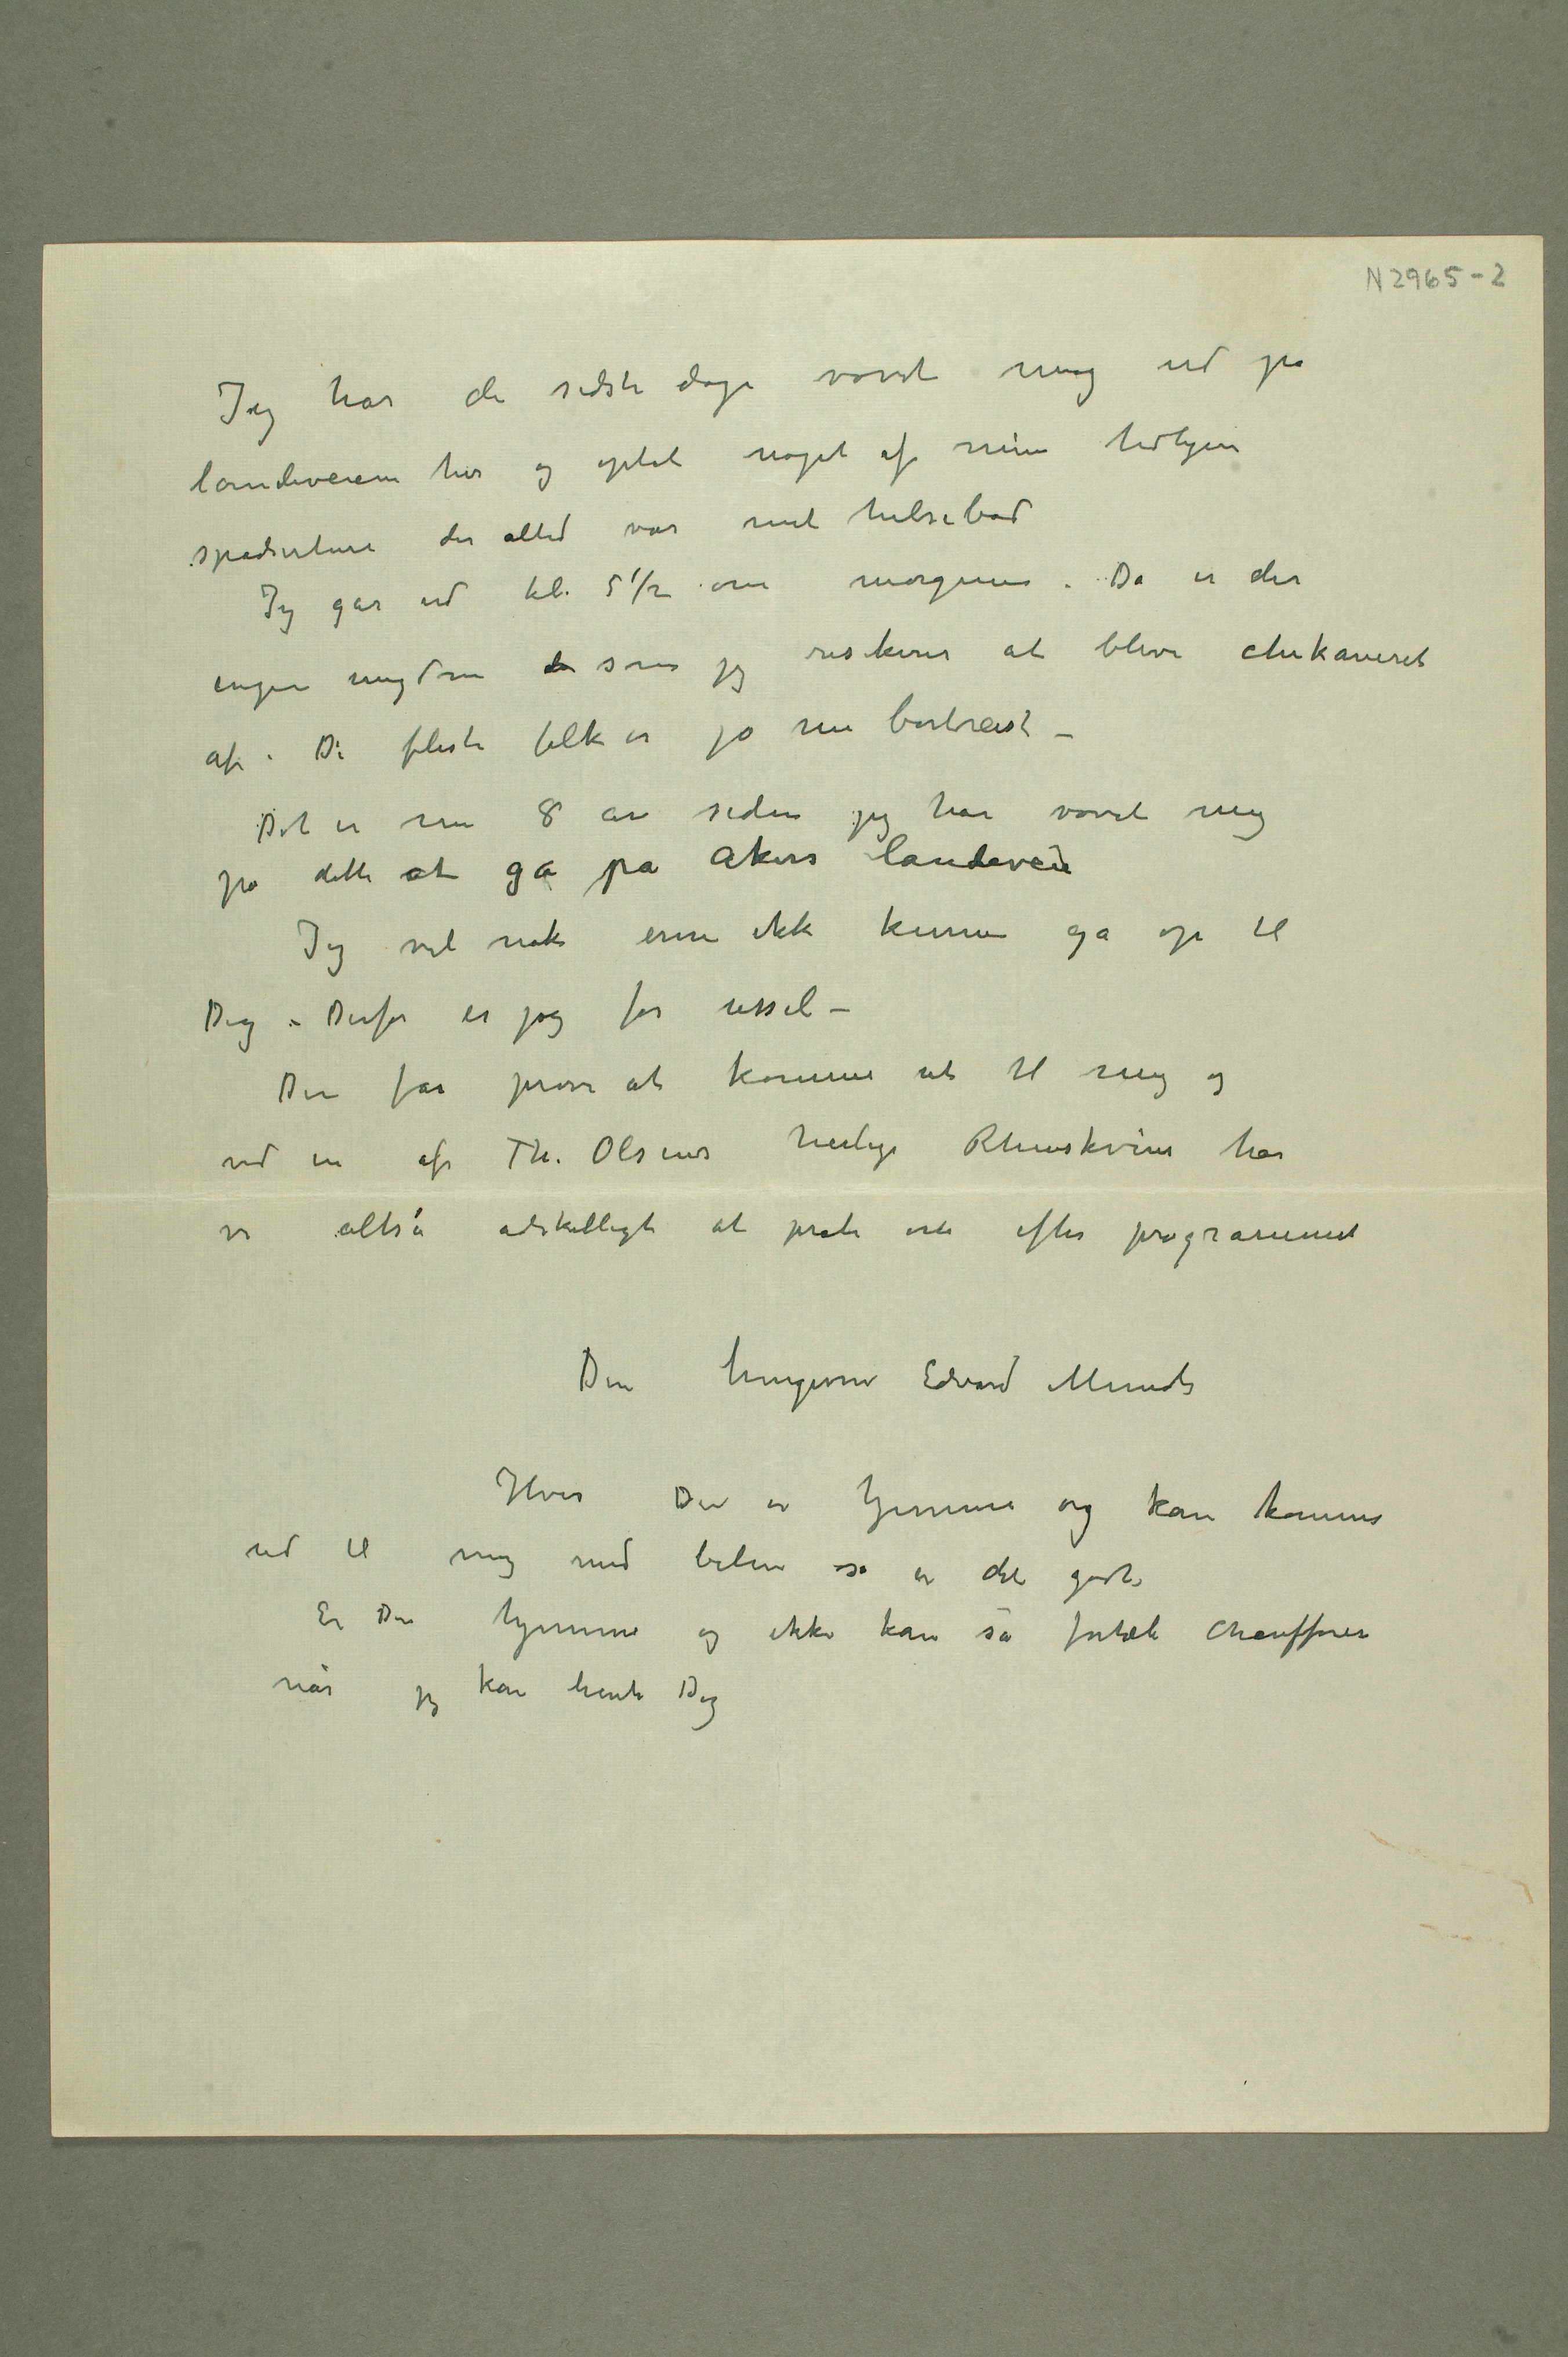 N 2965-2
Jeg har de sidste dage vovet mig ud på
landeveien her og optat noget af mine tidligere
spadserture der altid var mit helsebad
Jeg går ud kl. 5 1/2 om morgenen. Da er der
ingen ungdom som jeg riskerer at blive chikaneret
af. De fleste folk er jo nu bortreist –
Det er nu 8 år siden jeg har vovet mig
på dette at gå på Akers landevei
Jeg vil nok ennu ikke kunne gå op til
Dig – Derfor er jeg for ussel –
Du får prøve at komme ut til mig og
ved en af Th. Olsens herlige Rhinskvine har
vi altså adskilligt at prate om efter programmet
Din hengivne Edvard Munch
Hvis Du er hjemme og kan komme
ud til mig med bilen så er det godt
Er Du hjemme og ikke kan så fortæl chaufføren
når jeg kan hente Dig